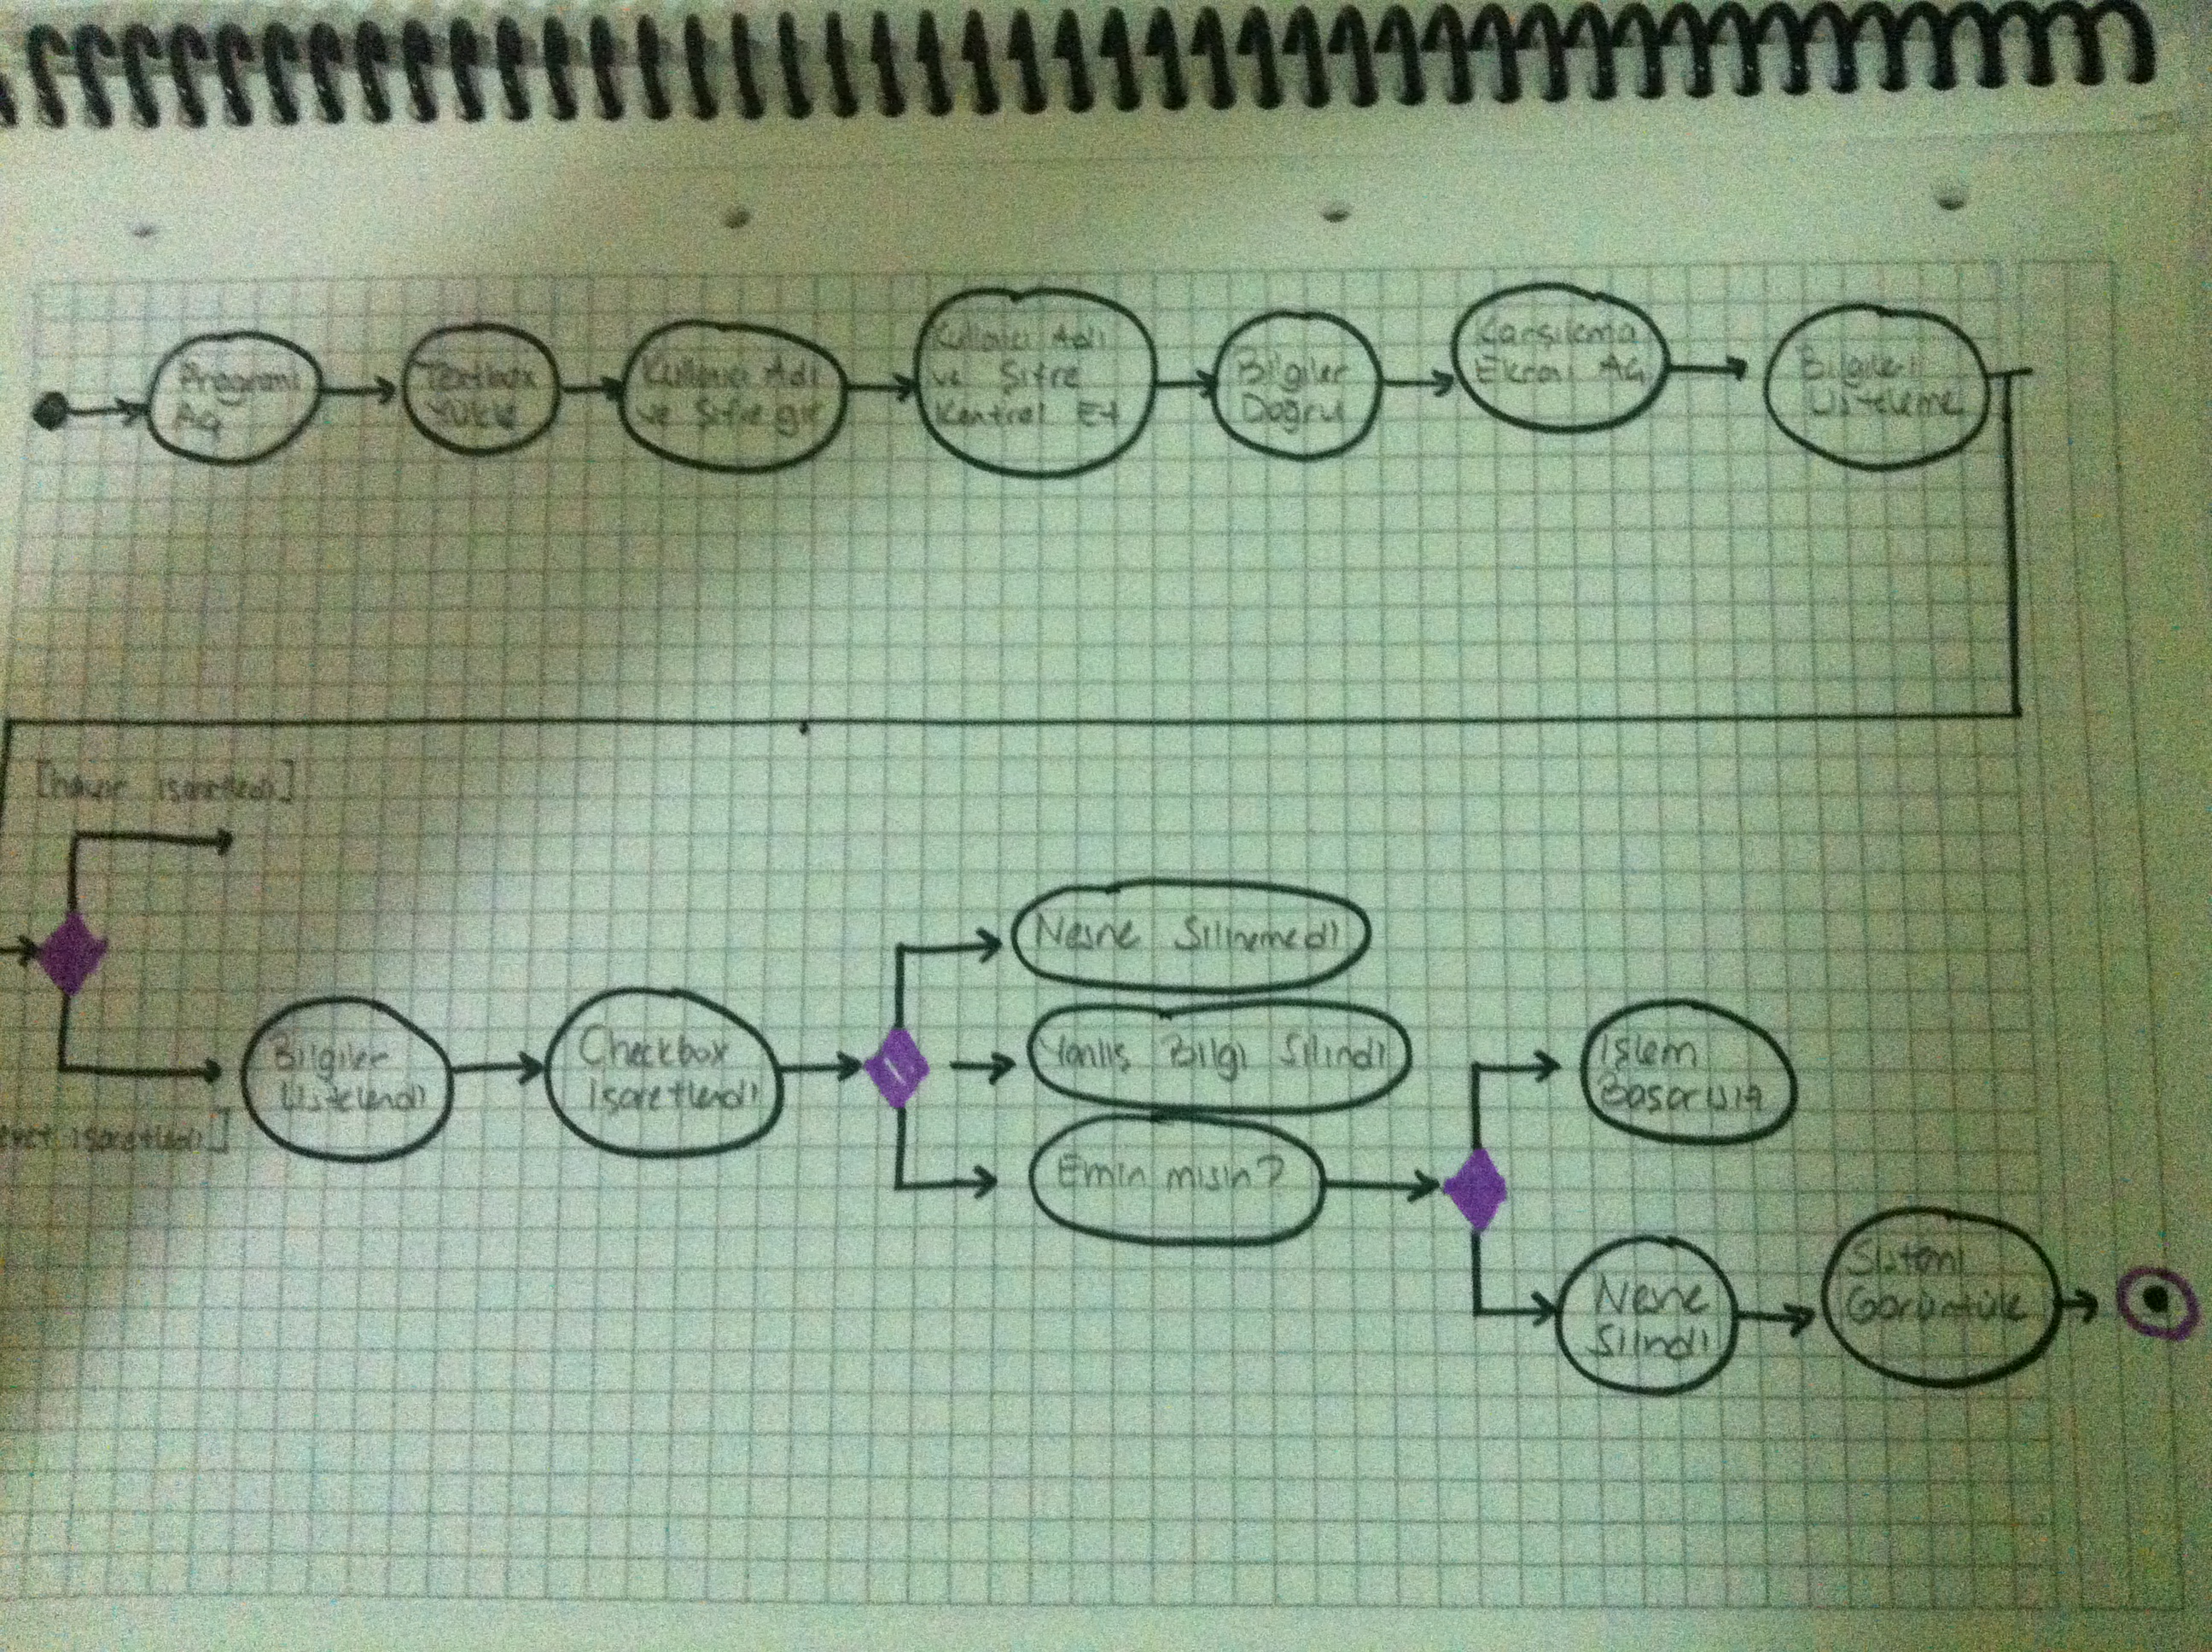 Programı
Aç
Textbox
Yükle
Kullanıcı Adı
ve Şifre gir
Kullanıcı Adı
ve Şifre
Kontrol Et
Bilgiler
Doğru
Karşılama
Ekranı Aç
Bilgileri
Listeleme
[hayır işaretledi]
Nesne Silinemedi
Bilgiler
Listelendi
Checkbox
İşaretlendi
Yanlış Bilgi Silindi
İşlem
Başarısız
evet işaretledi]
Emin misin?
Nesne
Silindi
Sistemi
Görüntüle